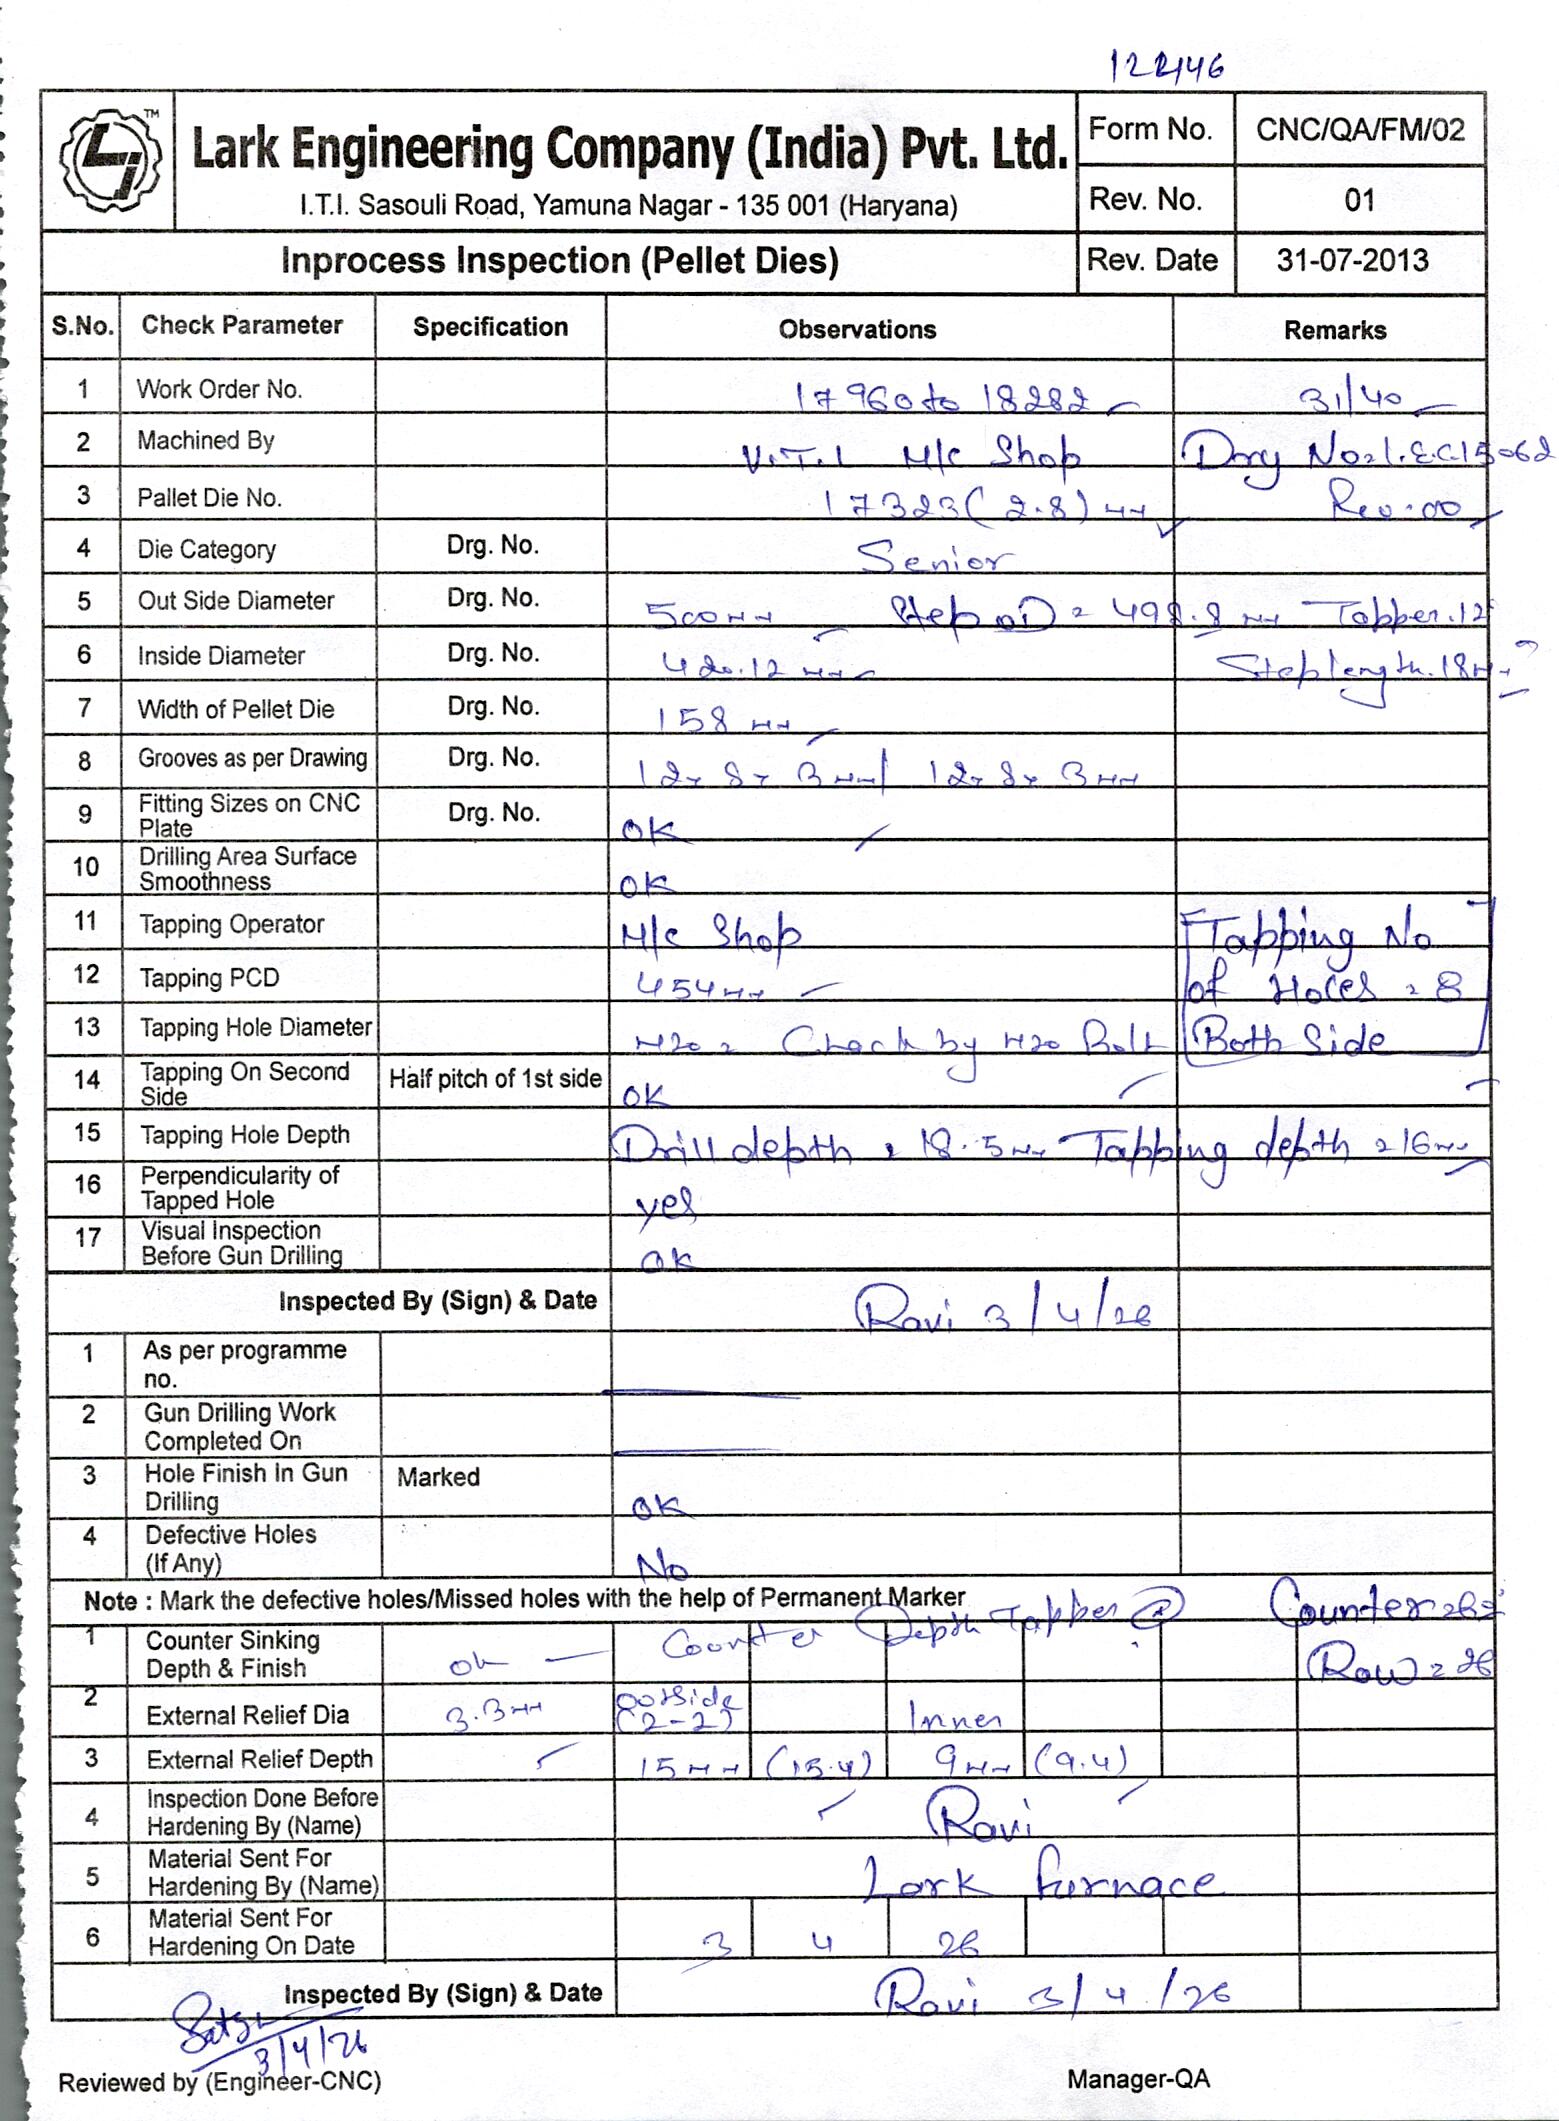 122146
TM
Lark Engineering Company (India) Pvt. Ltd.
I.T.I. Sasouli Road, Yamuna Nagar - 135 001 (Haryana)
Form No. CNC/QA/FM/02
Rev. No. 01
Inprocess Inspection (Pellet Dies) Rev. Date 31-07-2013
S.No. Check Parameter Specification Observations Remarks
1 Work Order No. 17960 to 18282 31/40
2 Machined By V.T.I M/c Shop
3 Pallet Die No. 17323 (2.8) mm Rev.00
4 Die Category Drg. No. Senior
5 Out Side Diameter Drg. No. 500mm Step OD = 498.8 mm Tapper.12°
6 Inside Diameter Drg. No. 420.12 mm Step length.18mm
7 Width of Pellet Die Drg. No. 158 mm
8 Grooves as per Drawing Drg. No. 12x8x3mm/ 12x8x3mm
9 Fitting Sizes on CNC Plate Drg. No. OK
10 Drilling Area Surface Smoothness OK
11 Tapping Operator M/c Shop Tapping No
12 Tapping PCD 454mm of Holes = 8
13 Tapping Hole Diameter M20 = Check by M20 Bolt Both Side
14 Tapping On Second Side Half pitch of 1st side OK
15 Tapping Hole Depth Drill depth = 18.5mm Tapping depth = 16mm
16 Perpendicularity of Tapped Hole yes
17 Visual Inspection Before Gun Drilling OK
Inspected By (Sign) & Date Ravi 3/4/26
1 As per programme no.
2 Gun Drilling Work Completed On
3 Hole Finish In Gun Drilling Marked OK
4 Defective Holes (If Any) No
Note : Mark the defective holes/Missed holes with the help of Permanent Marker
1 Counter Sinking Depth & Finish ok Counter Depth Tapper Counter Row = 26
2 External Relief Dia 3.3mm outside (2-2) Inner
3 External Relief Depth 15mm (15.4) 9mm (9.4)
4 Inspection Done Before Hardening By (Name) Ravi
5 Material Sent For Hardening By (Name) Lark furnace
6 Material Sent For Hardening On Date 3 4 26
Inspected By (Sign) & Date Ravi 3/4/26
3/4/26
Reviewed by (Engineer-CNC) Manager-QA